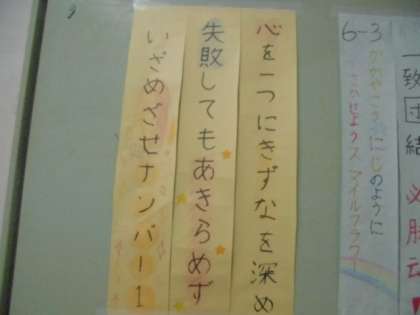 心を一つにきずなを深め
失敗してもあきらめず
いざめざせナンバー1
6-3
一致団結
必勝
かがやこうにじのように
さかせようスマイルフラワー